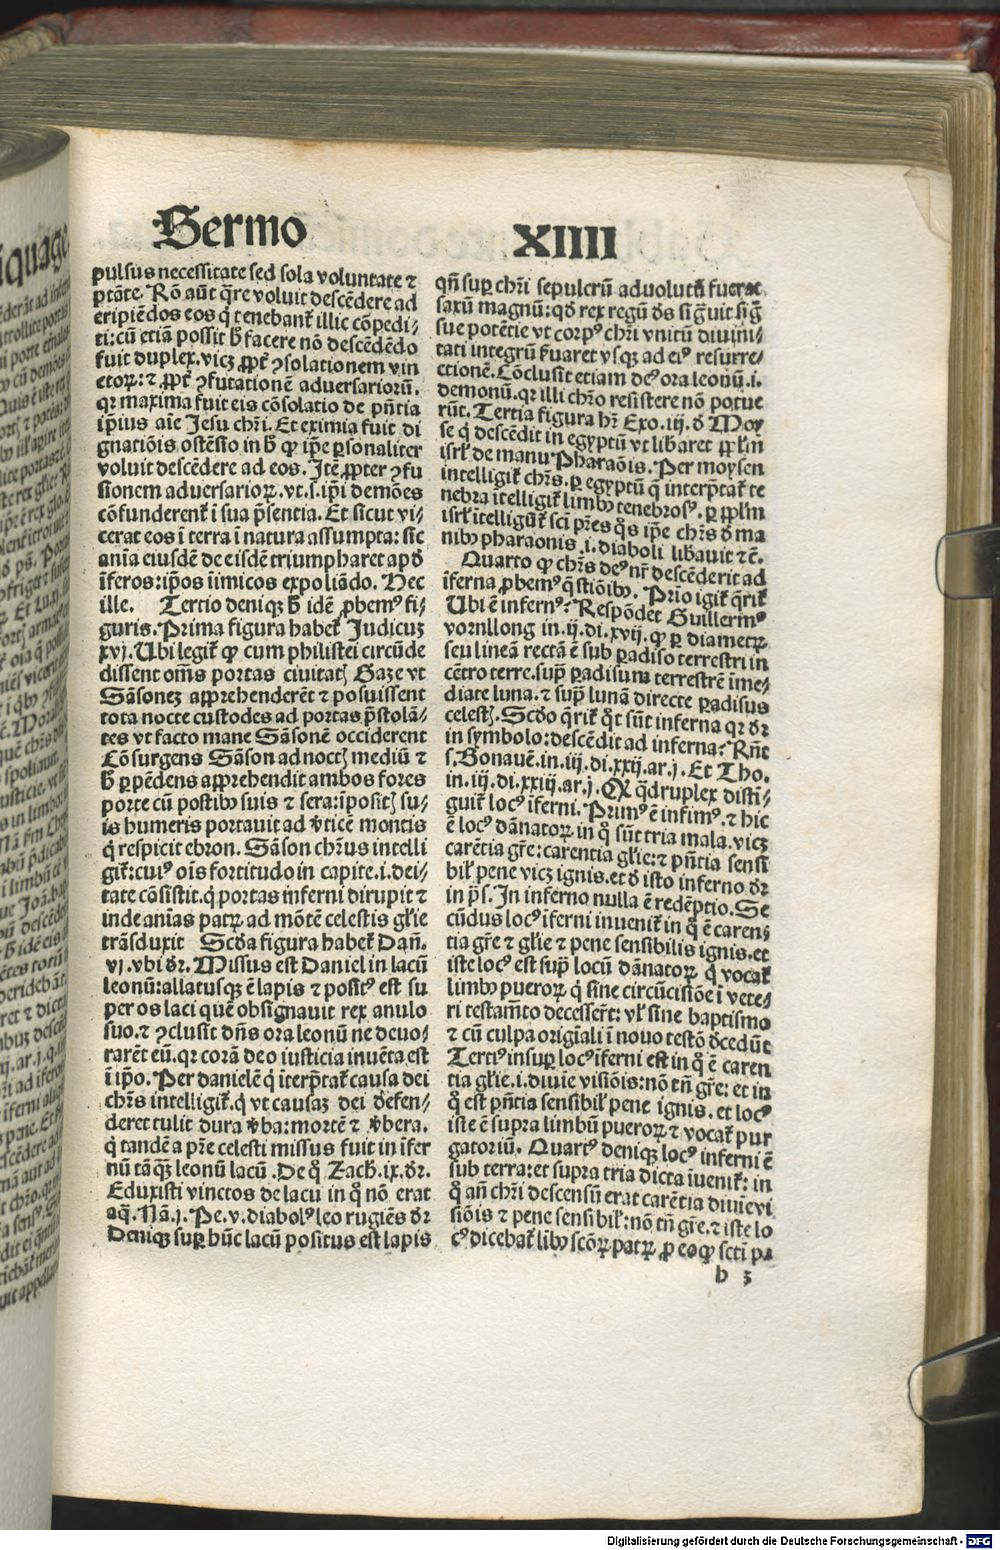 Sermo XIIII
pulsus necessitate sed sola voluntate ⁊
ptāte. Rō aūt q̄re voluit descēdere ad
eripiēdos eos q̇ tenebant̄ illic cōpedi⸗
ti: cū etiā possit h̄ facere nō descēdēdo
fuit duplex. vicꝫ ꝓpt̄ ꝯsolationem vin
ctoꝝ: ⁊ ꝓpt̄ ꝯfutationē adversarioruꝫ.
qꝛ maxima fuit eis cōsolatio de pn̄tia
ip̄ius aīe Jesu chr̄i. Et eximia fuit di
gnatiōis ostēsio in h̄ ꝙ ip̄e ꝑsonaliter
voluit descēdere ad eos. Itē ꝓpter ꝯfu
sionem adversarioꝝ. vt. s. ip̄i demōes
cōfunderent̄ ī sua p̄sentia. Et sicut vi⸗
cerat eos ī terra i natura assumpta: sic
anīa eiusdē de eisdē triumpharet apꝺ
īferos: ip̄os īimicos expoliādo. Nec
ille. Tertio deniqꝫ h̄ idē ꝓbemꝰ fi⸗
guris. Prima figura habet̄ Judicuꝫ
xvj. Ubi legit̄ ꝙ cum philistei circūde
dissent om̄s portas civitatꝭ Gaze vt
Sāsoneꝫ apprehenderēt ⁊ posuissent
tota nocte custodes ad portas p̄stolā⸗
tes vt facto mane Sāsonē occiderent
Cōsurgens Sāson ad noctꝭ mediū ⁊
h̄ ꝑpēdens apprehendit ambos fores
porte cū postibꝰ suis ⁊ sera: īpositꝭ su⸗
is humeris portauit ad v̄ticē montis
q̇ respicit ebron. Sāson chr̄us intelli
git̄: cuiꝰ oīs fortitudo in capite. i. dei⸗
tate cōsistit. q̇ portas inferni dirupit ⁊
inde anīas patꝝ ad mōtē celestis gl̄ie
trāsduxit Scd̄a figura habet̄ Dan̄.
vj. vbi dr̄. Missus est Daniel in lacū
leonū: allatusqꝫ ē lapis ⁊ positꝰ est su
per os laci quē obsignauit rex anulo
suo. ⁊ ꝯclusit dn̄s ora leonū ne deuo⸗
rarēt eū. qꝛ corā deo iusticia inuēta est
ī ip̄o. Per danielē q̇ īterp̄tat̄ causa dei
chr̄s intelligit̄. q̇ vt causaꝫ dei defen⸗
deret tulit dura v̄ba: mortē ⁊ v̄bera.
q̇ tandē a pr̄e celesti missus fuit in īfer
nū tāqꝫ leonū lacū. De q̊ Zach. ix. dr̄.
Eduxisti vinctos de lacu in q̊ nō erat
aq̄. Nā. j. Pe. v. diabolꝰ leo rugiēs dr̄
Deniqꝫ suꝑ hūc lacū positus est lapis
qn̄ suꝑ chr̄i sepulcrū aduolutū fuerat
saxū magnū: qd̄ rex regū ds̄ signuit sig̊
sue potētie vt corpꝰ chr̄i vnitū diuini⸗
tati integrū ẜuaret vsqꝫ ad eiꝰ resurre⸗
ctionē. Cōclusit etiam deꝰ ora leonū. i.
demonū. qꝛ illi chr̄o resistere nō potue
rūt. Tertia figura hr̄ Exo. iij. d̄ Moy
se q̇ descēdit in egyptū vt libaret ꝓplm̄
isrl̄ de manu Pharaōis. Per moysen
intelligit̄ chr̄s. ꝑ egyptū q̇ interp̄tat̄ te
nebra ītelligit̄ limbꝰ tenebrosꝰ. ꝑ ꝓplm̄
isrl̄ ītelligūt̄ sc̄i pr̄es q̊s ip̄e chr̄s d̄ ma
nibꝰ pharaonis. i. diaboli libauit ⁊c̄.
Quarto ꝙ chr̄s deꝰ nr̄ descēderit ad
īferna ꝓbemꝰ q̄stiōibꝰ. Prīo igit̄ q̄rit̄
Ubi ē infernꝰ? Respōdet Guillermꝰ
vornllong in. ij. di. xvij. ꝙ ꝑ diametꝝ
seu lineā rectā ē sub ꝑadiso terrestri in
cētro terre. suꝑ ꝑadisum terrestrē īme⸗
diate luna. ⁊ suꝑ lunā directe ꝑadisus
celestꝭ. Scd̄o q̄rit̄ q̊t sūt inferna qꝛ dr̄
in symbolo: descēdit ad inferna? Rn̄t
s. Bonauē. in. iij. di. xxij. ar. j. Et Tho.
in. iij. di. xxiij. ar. j. Qꝫ q̄druplex disti⸗
guit̄ locꝰ īferni. Primꝰ ē infimꝰ. ⁊ hic
ē locꝰ dānatoꝝ in q̊ sūt tria mala. vicꝫ
carētia gr̄e: carentia gl̄ie: ⁊ pn̄tia sensi
bil̄ pene vicꝫ ignis. et d̄ isto inferno dr̄
in ps̄. In inferno nulla ē redēptio. Se
cūdus locꝰ īferni inuenit̄ in q̊ ē caren⸗
tia gr̄e ⁊ gl̄ie ⁊ pene sensibilis ignis. et
iste locꝰ est suꝑ locū dānatoꝝ q̇ vocat̄
limbꝰ pueroꝝ q̇ sine circūcisiōe ī vete⸗
ri testam̄to decesser̄t: vl̄ sine baptismo
⁊ cū culpa origīali ī nouo testō d̄cedūt
Tertiꝰ insuꝑ locꝰ īferni est in q̊ ē caren
tia gl̄ie. i. diuīe visiōis: nō tn̄ gr̄e: et in
q̊ est pn̄tia sensibil̄ pene ignis. et locꝰ
iste ē supra limbū pueroꝝ ⁊ vocat̄ pur
gatoriū. Quartꝰ deniqꝫ locꝰ inferni ē
sub terra: et supra tria dicta īuenit̄: in
q̊ an̄ chr̄i descensū erat carētia diuīe vi
siōis ⁊ pene sensibil̄: nō tn̄ gr̄e. ⁊ iste lo
cꝰ dicebat̄ lībꝰ scōꝝ patꝝ ꝓ eo ꝙ scti pa
b 3
Digitalisierung gefördert durch die Deutsche Forschungsgemeinschaft - DFG